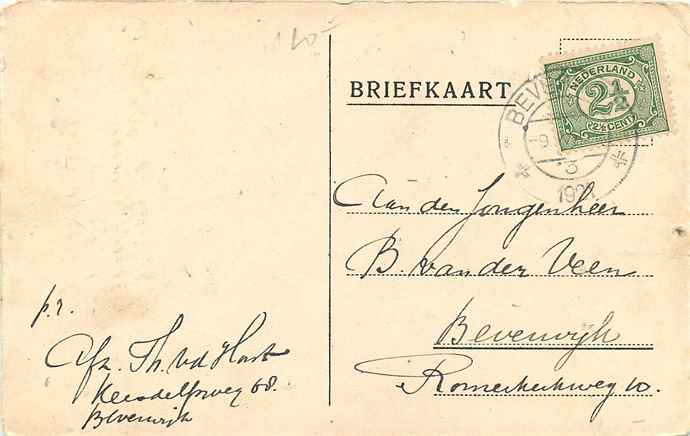 BRIEFKAART
NEDERLAND
2½
2½ CENT
BEV
9
3
192
Aan den Jongenheer
B. van der Veen
Beverwijk
Romerkerkweg 10.
p.r.
Afz. Th. v.d. Horst
68.
Beverwijk